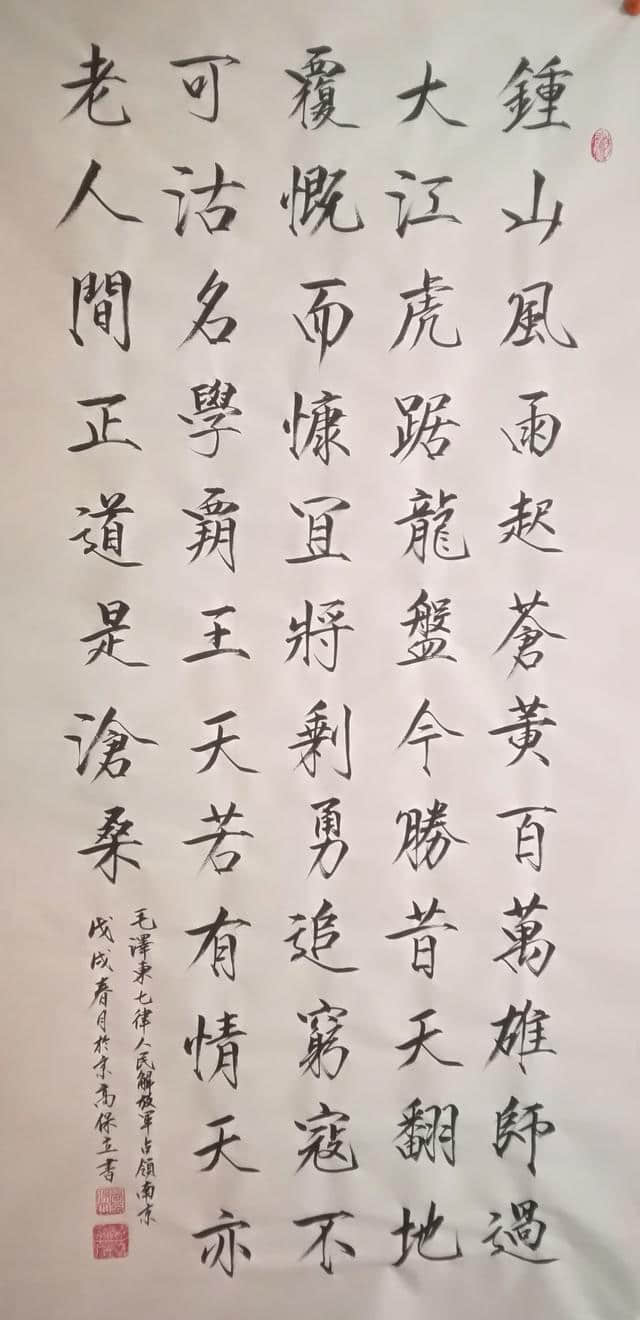 鍾山風雨起蒼黃百萬雄師過
大江虎踞龍盤今勝昔天翻地
覆慨而慷宜將剩勇追窮寇不
可沽名學霸王天若有情天亦
老人間正道是滄桑
毛澤東七律人民解放軍占領南京
戊戌春月於京高保立書